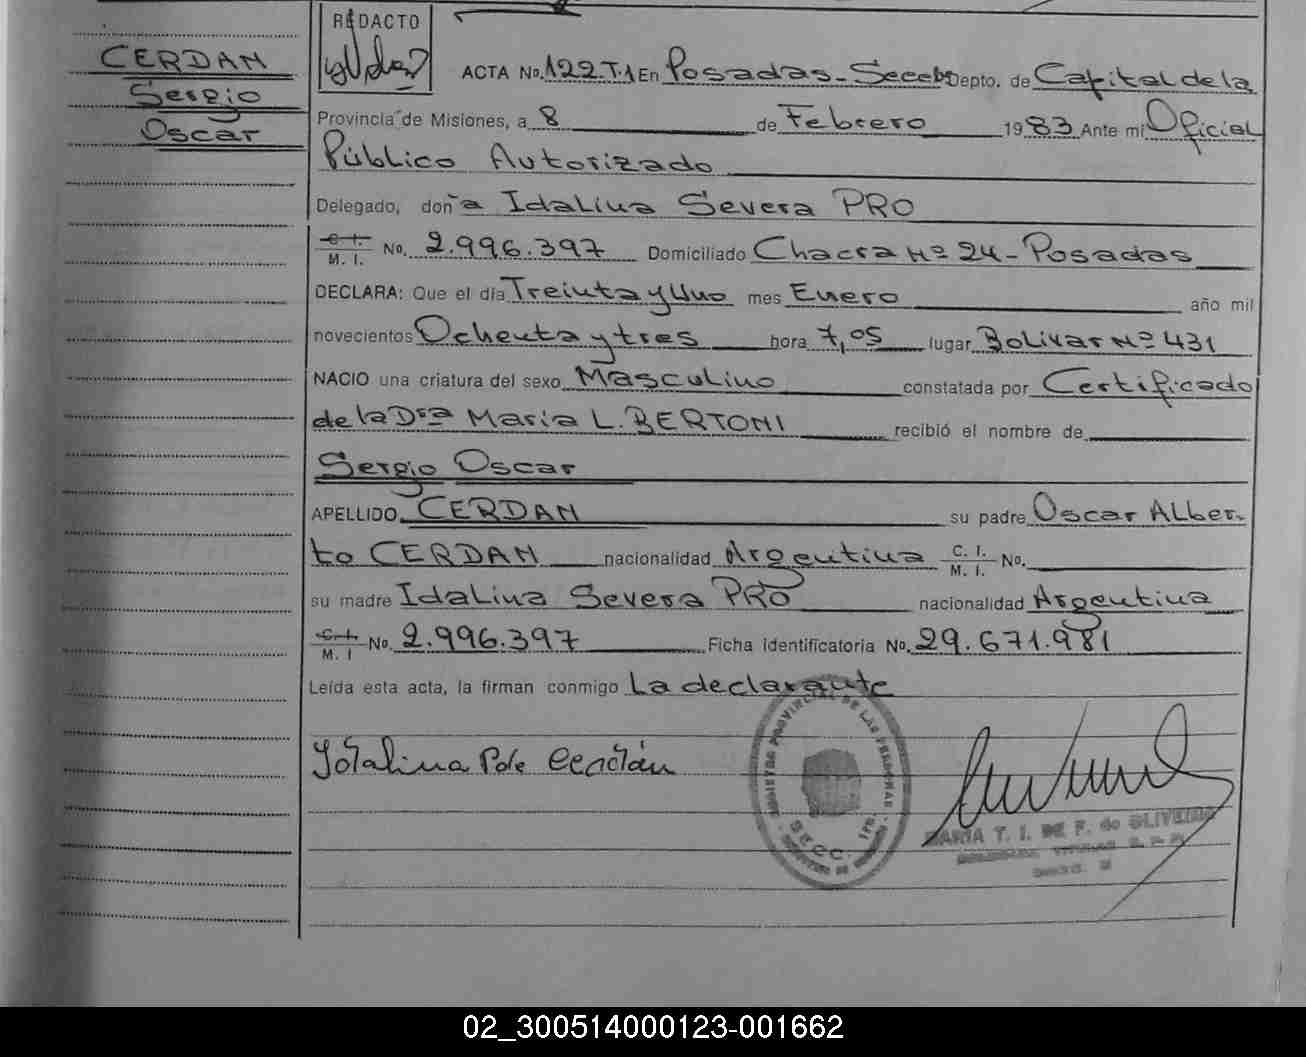 CERDAN
Sergio
Oscar
REDACTO
ACTA No. 122.T.1 En Posadas - Secc 6ª Depto. de Capital de la
Provincia de Misiones, a 8 de Febrero 1983 Ante mi Oficial
Público Autorizado
Delegado, doña Idalina Severa PRO
C. I. / M. I. No. 2.996.397 Domiciliado Chacra Nº 24 - Posadas
DECLARA: Que el día Treinta y Uno mes Enero año mil
novecientos Ochenta y tres hora 7,05 lugar Bolivar Nº 431
NACIO una criatura del sexo Masculino constatada por Certificado
de la Dra Maria L. BERTONI recibió el nombre de
Sergio Oscar
APELLIDO CERDAN su padre Oscar Alber-
to CERDAN nacionalidad Argentina C. I. / M. I. No.
su madre Idalina Severa PRO nacionalidad Argentina
C. I. / M. I No. 2.996.397 Ficha identificatoria No. 29.671.981
Leída esta acta, la firman conmigo La declarante
Idalina P de Cerdán
REGISTRO PROVINCIAL DE LAS PERSONAS
SECC. 1ra.
MARIA T. I. DE F. de OLIVEIRA
02_300514000123-001662